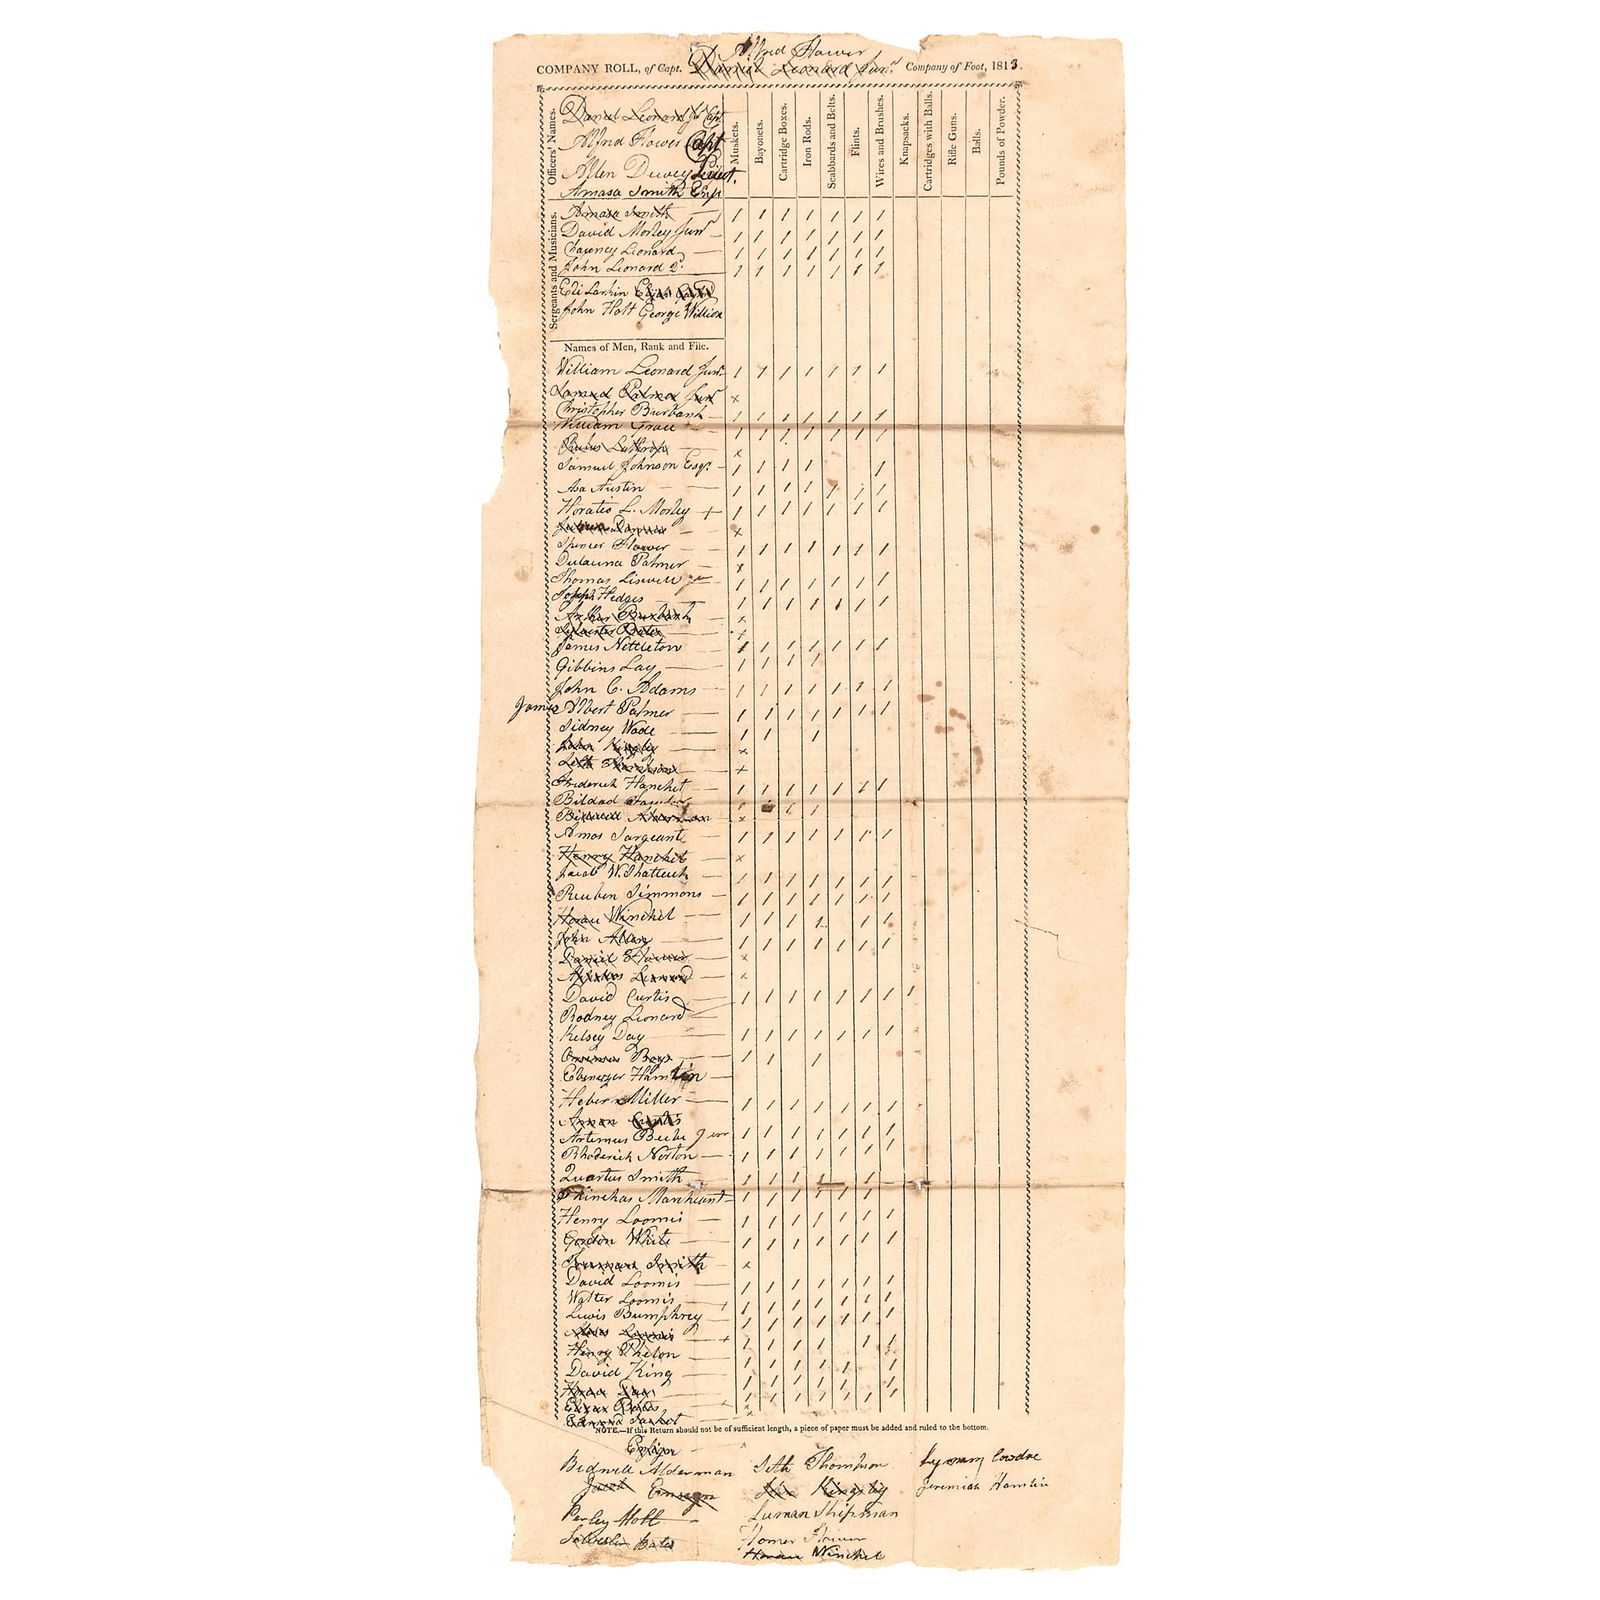 Alfred Flower
COMPANY ROLL, of Capt. Daniel Leonard Junr. Company of Foot, 1813.
Officers' Names.
Daniel Leonard Jr Capt
Alfred Flower Capt
Allen Dewey Lieut.
Amasa Smith Ens
Muskets.
Bayonets.
Cartridge Boxes.
Iron Rods.
Scabbards and Belts.
Flints.
Wires and Brushes.
Knapsacks.
Cartridges with Balls.
Rifle Guns.
Balls.
Pounds of Powder.
Sergeants and Musicians.
Amasa Smith
David Morley Junr
Chauncy Leonard
John Leonard 2d
Eli Larkin
John Holt George Willcox
Names of Men, Rank and File.
William Leonard Junr
Palmer Junr
Christopher Burbank
William Grace
Lathrop
Samuel Johnson Esqr.
Asa Austin
Horatio L. Morley +
Spencer Flower
Palmer
Thomas Liswell
Joseph Hedges
Arthur Burbank
Bates
James Nettleton
Gibbins Lay
John C. Adams
James Albert Palmer
Sidney Wade
John Kingsly
Seth Thompson
Frederick Hanchet
Bildad Fowler
Bidwell Alderman
Amos Sargeant
Henry Hanchet
Jacob W. Shattuck
Reuben Simmons
Horace Winchel
John Allen
Daniel Flower
Leonard
David Curtis
Rodney Leonard
Kelsey Day
Ebenezer Hamlin
Heber Miller
Curtis
Artemus Beebe Junr
Rhoderick Norton
Quartus Smith
Phinehas Marchant
Henry Loomis
Gordon White
Smith
David Loomis
Walter Loomis
Lewis Bumphrey
Loomis
Henry Phelon
David King
Horace Day
Bates
Sacket
NOTE.—If this Return should not be of sufficient length, a piece of paper must be added and ruled to the bottom.
Bidwell Alderman Seth Thompson Lyman Cowdre
Jacob John Kingsly Jeremiah Hamlin
Perley Holt Luman Shipman
Sylvester Bates Homer Flower
Horace Winchel